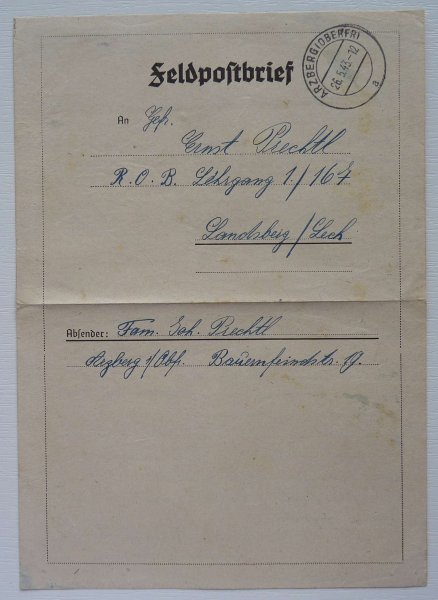 Feldpostbrief
ARZBERG (OBERFR)
26.5.43.-12
a
An Gefr.
Ernst Prechtl
R. O. B. Lehrgang 1./167
Landsberg / Lech
Absender: Fam. Joh. Prechtl
Arzberg i/Obf. Bauernfeindstr. 19.